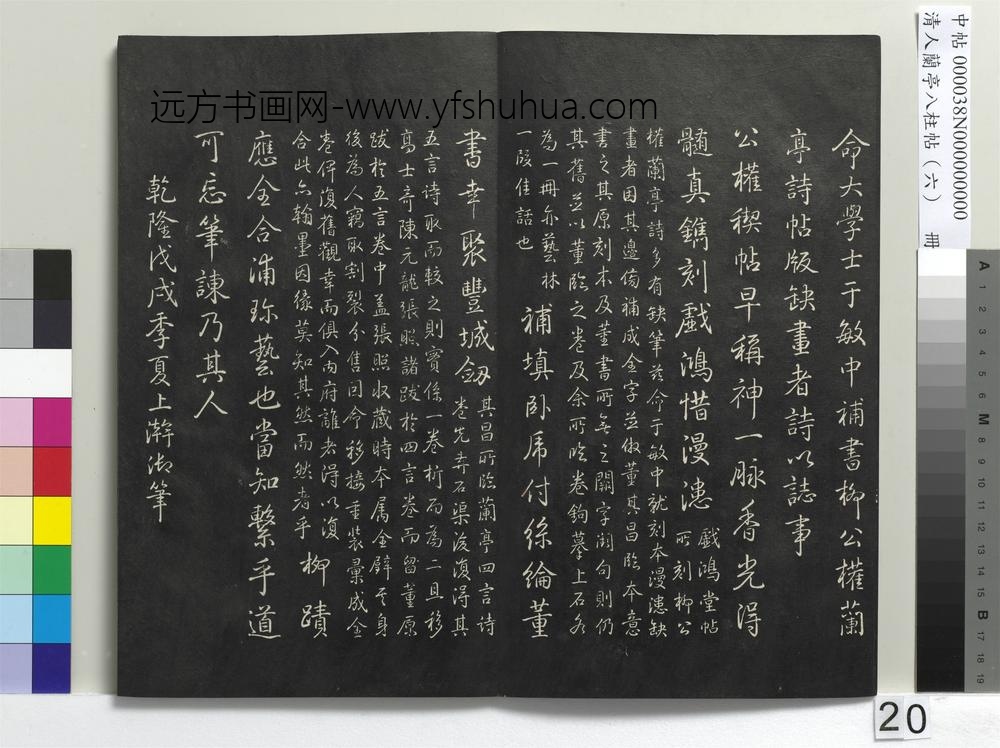 命大學士于敏中補書柳公權蘭
亭詩帖版缺畫者詩以誌事
公權稧帖早稱神一脉香光得
髓真鐫刻戲鴻惜漫漶
戲鴻堂帖
所刻柳公
權蘭亭詩多有缺筆茲命于敏中就刻本漫漶缺
畫者因其邊傍補成全字並倣董其昌臨本意
書之其原刻本及董書所無之闕字闕句則仍
其舊並以董臨之卷及余所臨卷鉤摹上石各
為一冊亦藝林
一段佳話也
補填卧席付絲綸董
書幸聚豐城劒
其昌所臨蘭亭四言詩
卷先弆石渠後復得其
五言詩取而較之則實係一卷析而為二且移
高士奇陳元龍張照諸跋於四言卷而留董原
跋於五言卷中蓋張照收藏時本屬全璧其身
後為人竊取割裂分售因命移接重裝彙成全
卷俾復舊觀幸而俱入內府離者得以復
合此亦翰墨因緣莫知其然而然者乎
柳蹟
應全合浦珎藝也當知繫乎道
可忘筆諫乃其人
乾隆戊戌季夏上澣御筆
远方书画网-www.yfshuhua.com
中帖 000038N000000000
清人蘭亭八柱帖（六） 冊
20
A 1 2 3 4 5 6 M 8 9 10 11 12 13 14 15 B 17 18 19